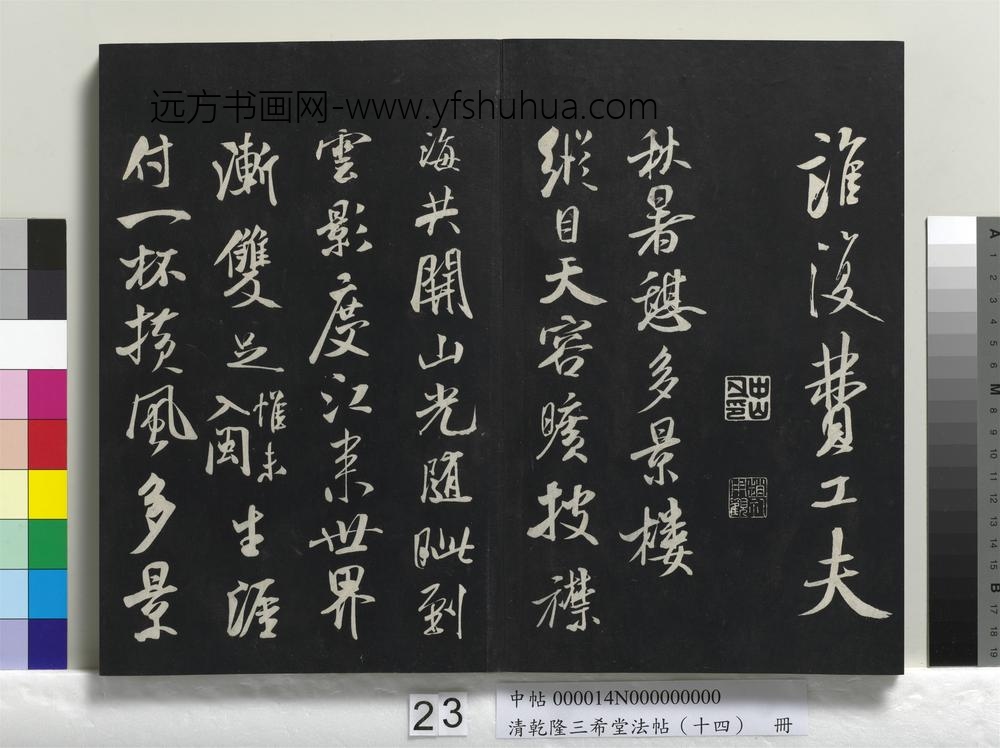 远方书画网-www.yfshuhua.com
誰復費工夫
秋暑憩多景樓
縱目天容曠披襟
海共開山光隨眦到
雲影度江來世界
漸雙足惟未入閩生涯
付一杯橫風多景
23
中帖 000014N000000000
清乾隆三希堂法帖（十四） 冊
A 1 2 3 4 5 6 M 8 9 10 11 12 13 14 15 B 17 18 19